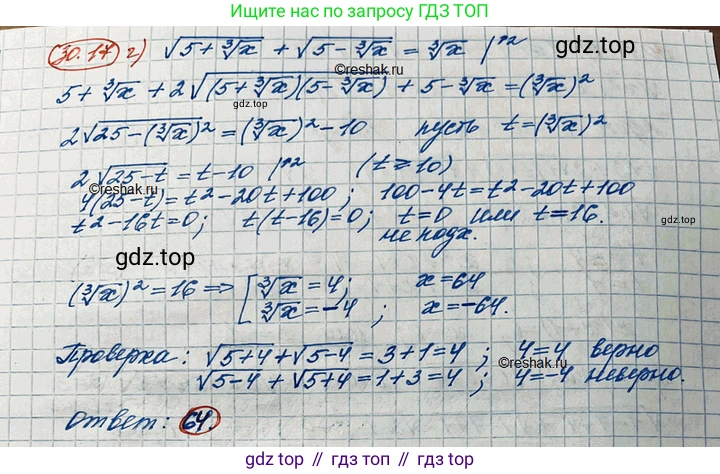 Ищите ответы по запросу ГДЗ ТОП
30.17 г) √(5+∛x) + √(5-∛x) = ∛x |↑2
gdz.top
©reshak.ru
5+∛x + 2√((5+∛x)(5-∛x)) + 5-∛x = (∛x)²
gdz.top
2√(25-(∛x)²) = (∛x)²-10 пусть t=(∛x)²
2√(25-t) = t-10 |↑2 (t⩾10)
©reshak.ru
4(25-t)=t²-20t+100; 100-4t=t²-20t+100
t²-16t=0; t(t-16)=0; t=0 или t=16.
не подх.
gdz.top
gdz.top
(∛x)²=16 ⇒ [ ∛x=4; x=64
∛x=-4; x=-64.
Проверка: √(5+4)+√(5-4)=3+1=4; 4=4 верно
©reshak.ru
√(5-4)+√(5+4)=1+3=4; 4=-4 неверно.
Ответ: 64.
gdz.top
gdz top // гдз топ // gdz.top